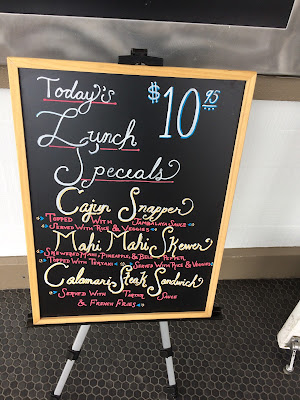 Today's $10.95
Lunch
Specials
Cajun Snapper
Topped With Jambalaya Sauce
Served With Rice & Veggies
Mahi Mahi Skewer
Skewered Mahi, Pineapple, & Bell Pepper
Topped With Teriyaki Served With Rice & Veggies
Calamari Steak Sandwich
Served With Tarter Sauce
& French Fries